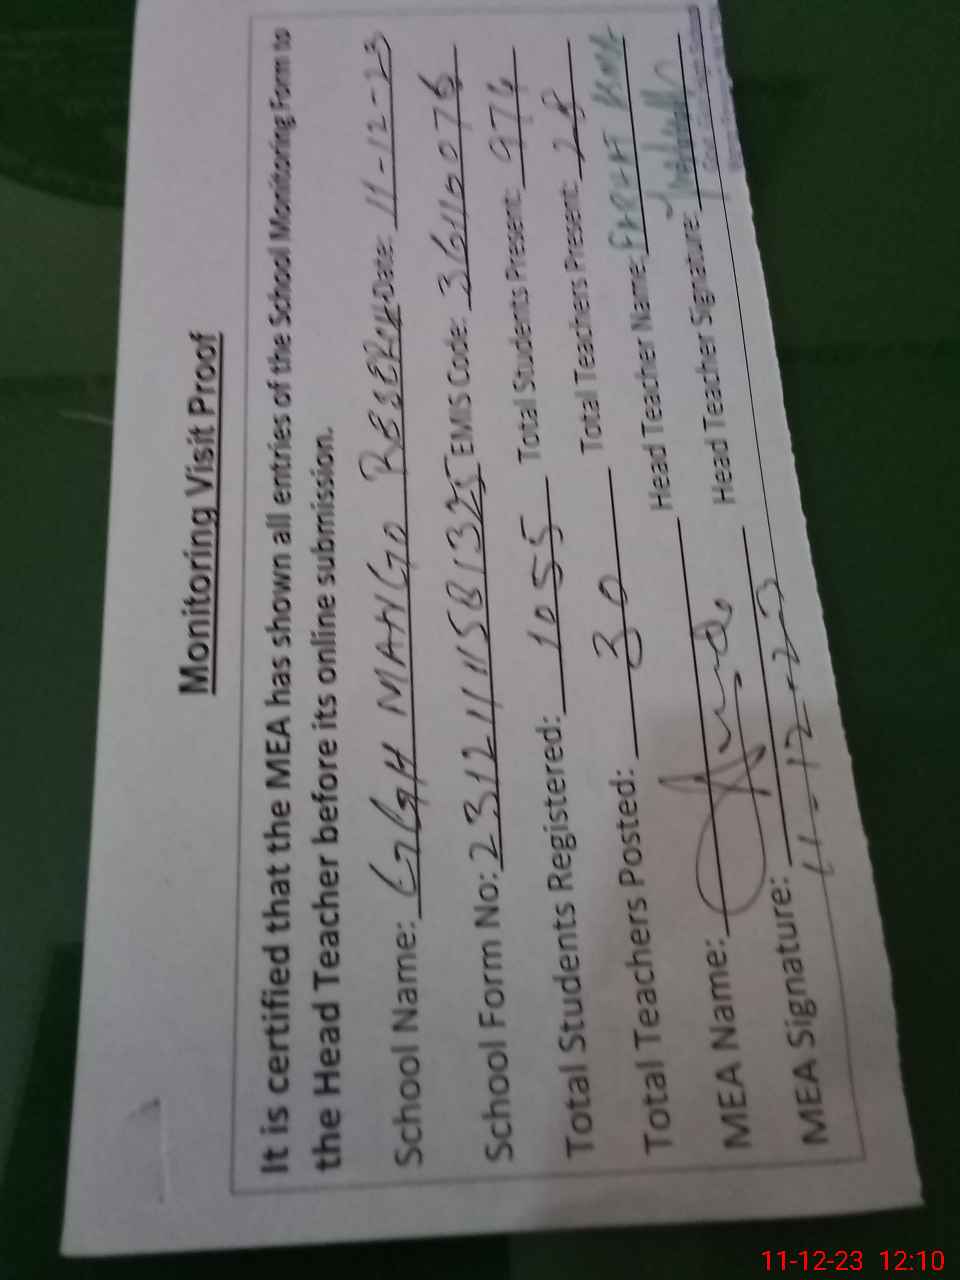 Monitoring Visit Proof
It is certified that the MEA has shown all entries of the School Monitoring Form to
the Head Teacher before its online submission.
School Name: GGH MANGO RESERCH Date: 11-12-23
School Form No: 231211115B1325 EMIS Code: 36110076
Total Students Registered: 1055 Total Students Present: 974
Total Teachers Posted: 30 Total Teachers Present: 28
MEA Name: Head Teacher Name: FARHAT
MEA Signature: Head Teacher Signature:
11-12-23
11-12-23 12:10